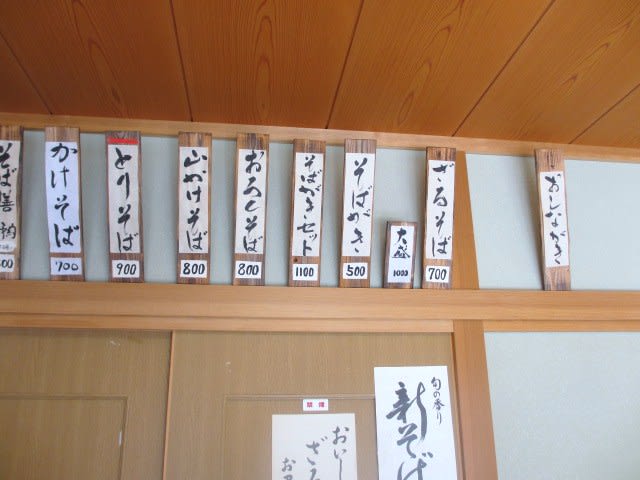 おしながき
ざるそば
700
大盛
1000
そばがき
500
そばがきセット
1100
おろしそば
800
山かけそば
800
とりそば
900
かけそば
700
そば膳
旬の香り
新そば
おいし
ざる
禁煙